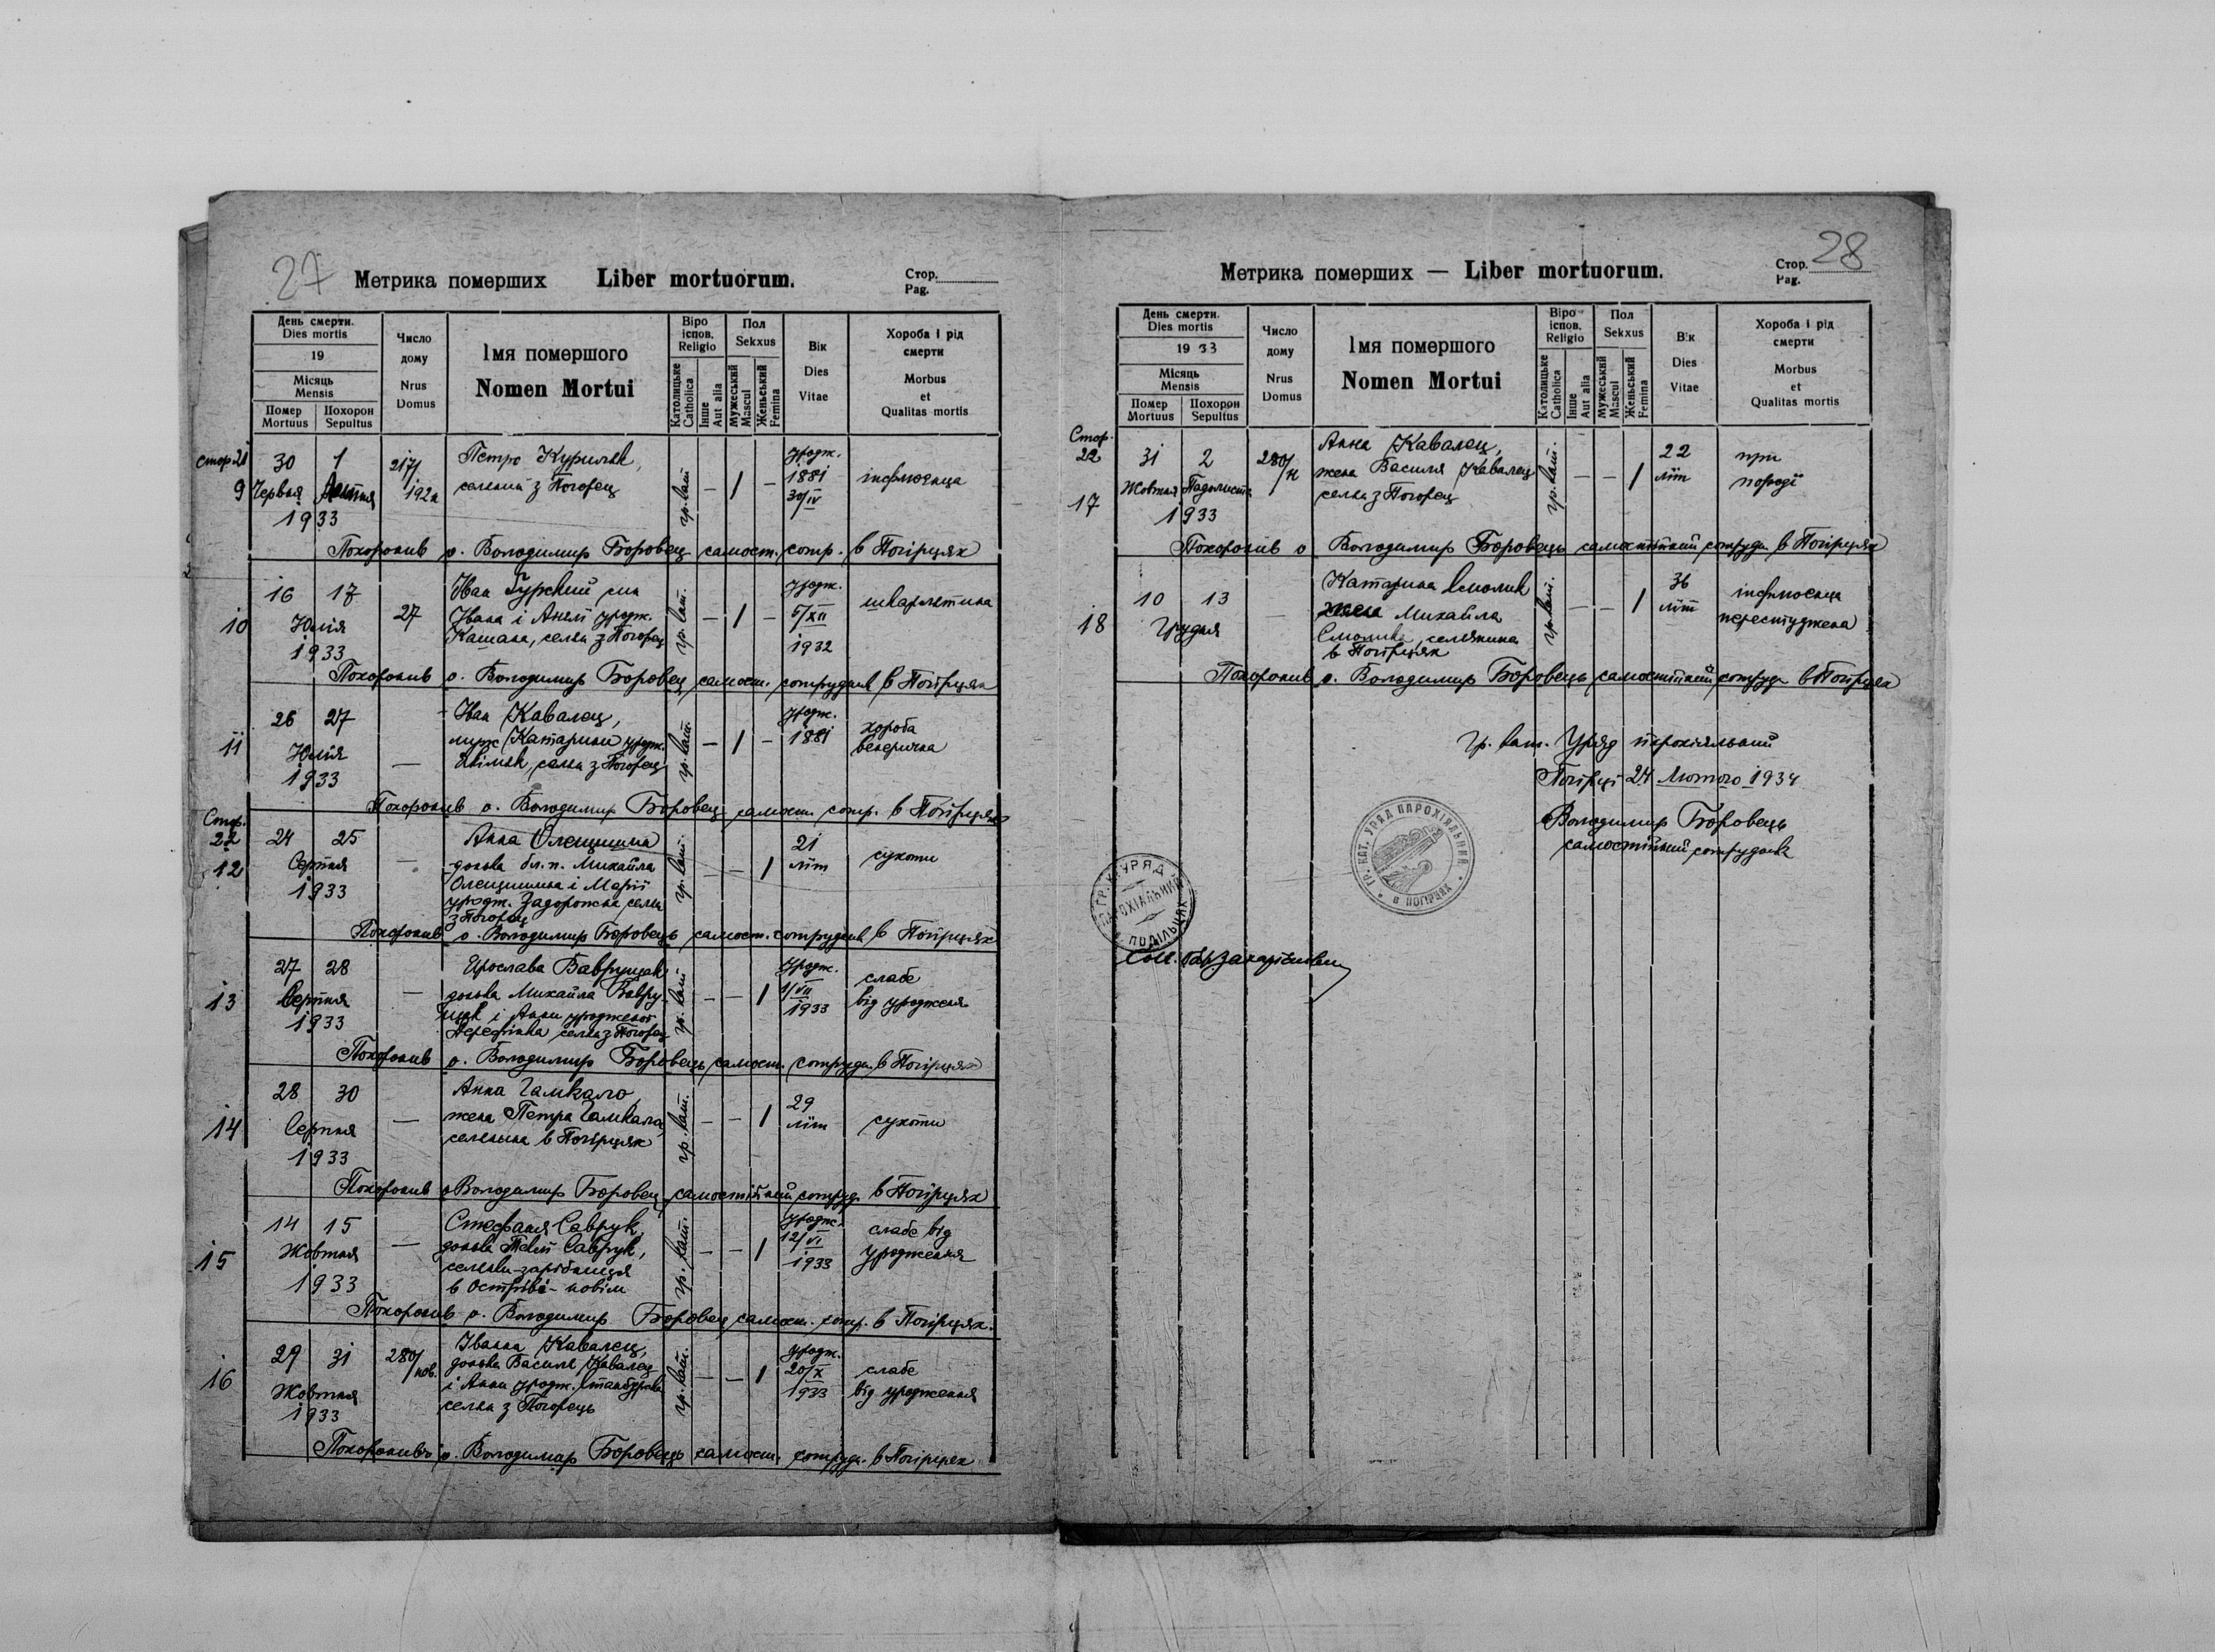 27
Метрика померших Liber mortuorum.
Стор.
Pag.
День смерти.
Dies mortis
19
Місяць
Mensis
Помер
Mortuus
Похорон
Sepultus
Число
дому
Nrus
Domus
Імя помершого
Nomen Mortui
Віро
іспов.
Religio
Католицьке
Catholica
Інше
Aut alia
Пол
Sekxus
Мужеський
Mascul
Женьський
Femina
Вік
Dies
Vitae
Хороба і рід
смерти
Morbus
et
Qualitas mortis
стор 21
9
30 1
Червня
1933
217/
192а
Петро Куриляк,
селянин з Погорец
гр. кат
— 1 —
уродж.
1881
30/IV
інфлюенца
Похоронив о. Володимир Боровец самост. сотр. в Погірцях
10
16 17
Юлія
1933
27
Іван Гурский син
Івана і Анелї уродж.
Кашала, селян з Погорец
гр. кат.
— 1 —
уродж.
5/XII
1932
шкарлятина
Похоронив о. Володимир Боровец самост. сотрудник в Погірцях
11
26 27
Юлія
1933
—
Іван Кавалец,
муж Катарини уродж.
селян з Погорец
гр. кат.
— 1 —
уродж.
1881
хороба
венерична
Похоронив о. Володимир Боровец самост. сотр. в Погірцях
Стор.
22
12
24 25
Серпня
1933
—
Анна Олещишин
донька бл. п. Михайла
Олещишина і Марії
уродж. Задорожна селян
з Погорец
гр. кат.
— — 1
21
літ
сухоти
Похоронив о. Володимир Боровець самост. сотрудник в Погірцях
13
27 28
Серпня
1933
—
Ярослава Наврущак
донька Михайла Навру-
щак і Анни уродженої
селян з Погорец
гр. кат
— — 1
уродж.
1/VII
1933
слабе
від уродженя
Похоронив о. Володимир Боровець самост. сотруд. в Погірцях
14
28 30
Серпня
1933
—
Анна Гамкало,
жена Петра Гамкала,
селянина в Погірцях
гр. кат.
— — 1
29
літ
сухоти
Похоронив о Володимир Боровец самостійний сотруд. в Погірцях
15
14 15
Жовтня
1933
—
Стефанія Саврук,
донька Теклї Саврук,
селянки-зарібниця
в Острові-новім
гр. кат.
— — 1
уродж.
12/VI
1933
слабе від
уродження
Похоронив о. Володимир Боровец самост. сотр. в Погірцях.
16
29 31
Жовтня
1933
280/
нов.
Іванна Кавалец,
донька Василя Кавалец
і Анни уродж.
селян з Погорець
гр. кат.
— — 1
уродж.
20/X
1933
слабе
від уродження
Похоронив о. Володимир Боровець самост. сотруд. в Погірцях
28
Метрика померших — Liber mortuorum.
Стор.
Pag.
День смерти.
Dies mortis
1933
Місяць
Mensis
Помер
Mortuus
Похорон
Sepultus
Число
дому
Nrus
Domus
Імя помершого
Nomen Mortui
Віро
іспов.
Religio
Католицьке
Catholica
Інше
Aut alia
Пол
Sekxus
Мужеський
Mascul
Женьський
Femina
Вік
Dies
Vitae
Хороба і рід
смерти
Morbus
et
Qualitas mortis
Стор.
22
17
31 2
Жовтня Падолиста
1933
280/
н
Анна Кавалец,
жена Василя Кавалец
селян з Погорец
гр. кат.
— — 1
22
літ
при
породї
Похоронив о Володимир Боровець самостійний сотруд. в Погірцях
18
10 13
Грудня
—
Катарина Смолик
жена Михайла
Смолика, селянина
в Погірцях
гр. кат.
— — 1
36
літ
інфлюенца
перестуджена
Похоронив о. Володимир Боровець самостійний сотруд. в Погірцях
Гр. кат. Уряд парохіяльний
Погірці 24 Лютого 1934
Володимир Боровець
самостійний сотрудник
ГР. КАТ. УРЯД ПАРОХІЯЛЬНИЙ
в ПОГІРЦЯХ
ГР. К. УРЯД
ПАРОХІЯЛЬНИЙ
ПОДІЛЬЦЯХ